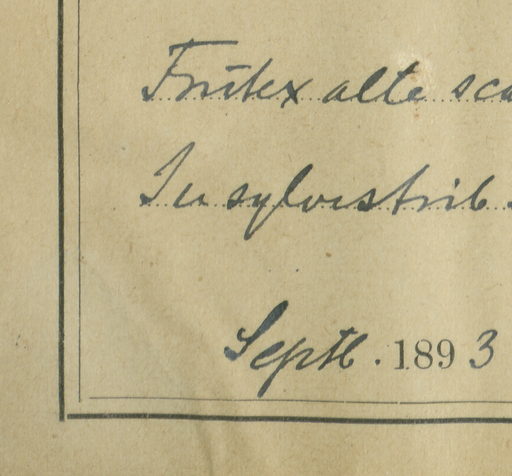 Frutex alte sca
In sylvestrib.
Septb. 1893